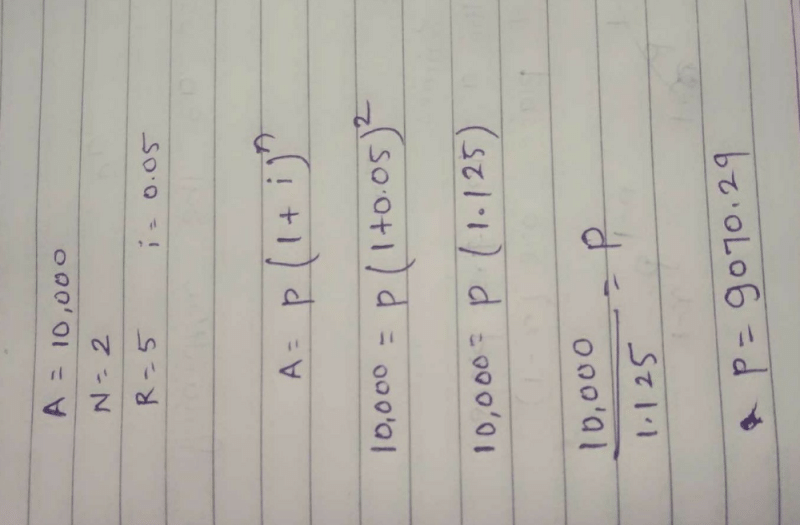 A = 10,000
N = 2
R = 5 i = 0.05
A = p (1 + i)^n
10,000 = p (1+0.05)^2
10,000 = p (1.125)
10,000 / 1.125 = p
p = 9070.29